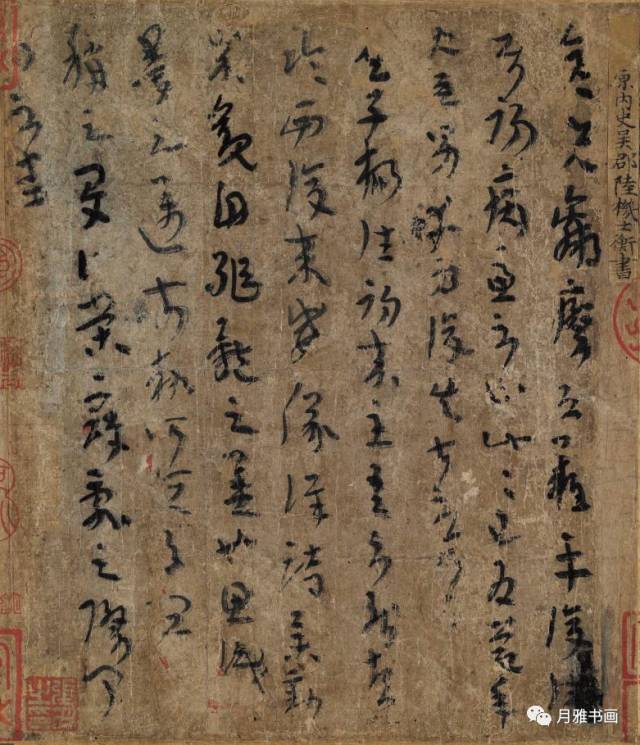 原內史吳郡陸機士衡書
彥先羸瘵恐難平復往屬
初病慮不止此此已為慶承
使唯男幸為復失前憂耳
吳子楊往初來主吾不能盡
臨西復來威儀詳跱舉動
成觀自軀體之美也思識
量之邁前執所恒有宜
稱之夏伯榮寇亂之際聞
問不悉
月雅书画